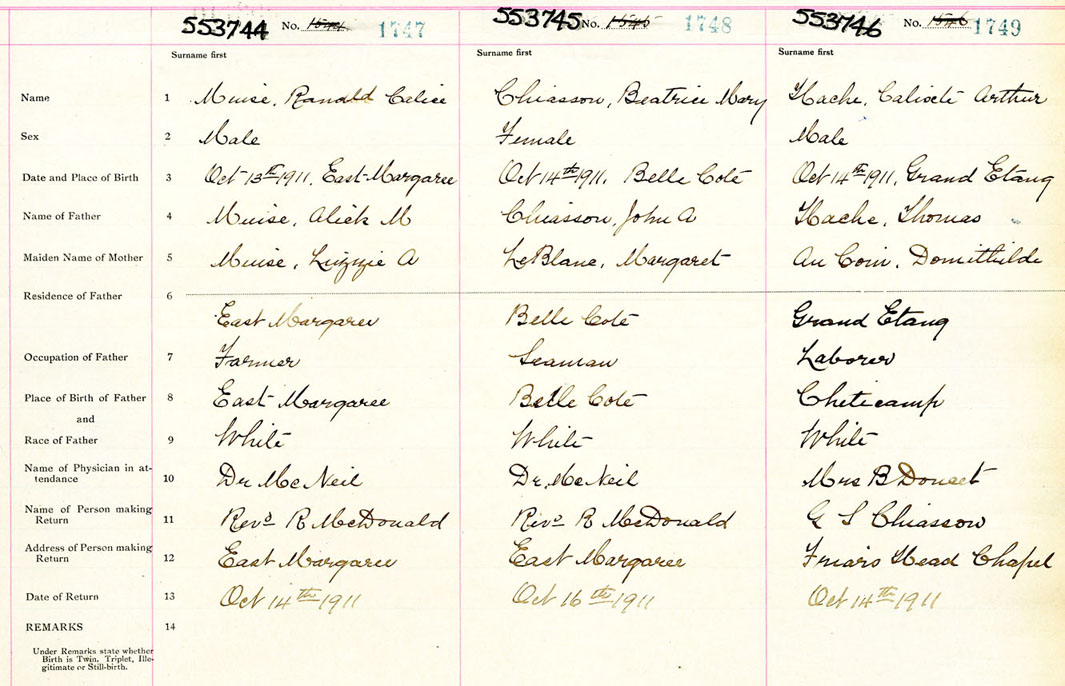 553744 No. 1747 553745 No. 1748 553746 No. 1749
Surname first Surname first Surname first
Name 1 Muise, Ranald Calice Chiasson, Beatrice Mary Hache, Calixte Arthur
Sex 2 Male Female Male
Date and Place of Birth 3 Oct 13th 1911, East Margaree Oct 14th 1911, Belle Coté Oct 14th 1911, Grand Etang
Name of Father 4 Muise, Alick M Chiasson, John A Hache, Thomas
Maiden Name of Mother 5 Muise, Lizzie A LeBlanc, Margaret Au Coin, Domithilde
Residence of Father 6
East Margaree Belle Coté Grand Etang
Occupation of Father 7 Farmer Seaman Laborer
Place of Birth of Father 8 East Margaree Belle Coté Cheticamp
and
Race of Father 9 White White White
Name of Physician in at-
tendance 10 Dr McNeil Dr. McNeil Mrs B Doucet
Name of Person making
Return 11 Revd R McDonald Revd R McDonald G S Chiasson
Address of Person making
Return 12 East Margaree East Margaree Friars Head Chapel
Date of Return 13 Oct 14th 1911 Oct 16th 1911 Oct 14th 1911
REMARKS 14
Under Remarks state whether
Birth is Twin, Triplet, Ille-
gitimate or Still-birth.